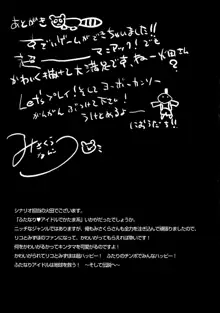 あとがき
すごいゲームができちゃいました!!
マニアック!でも
かわいく描けて大満足です、ねー火田さん?
Let'sプレイ!そしてヨーボーカンソー
がんがんぶつけて下さい
うけとめるよー
におうだち!!
みさくらなんこつ
シナリオ担当の火田でございます。
『ふたなり♥アイドルでかたま系』いかがだったでしょうか。
ニッチなジャンルではありますが、俺もみさくらさんも全力を注ぎ込んで頑張りましたので、
リコとみすほのファンになって、かわいがってもらえれば幸いです!
何をかわいがるってキンタマを可愛がるのですよ!
かわいがられてリコとみすほは超ハッピー! ふたりのチンポでみんなもハッピー!
ふたなりアイドルは地球を救う! ～そして伝説へ～